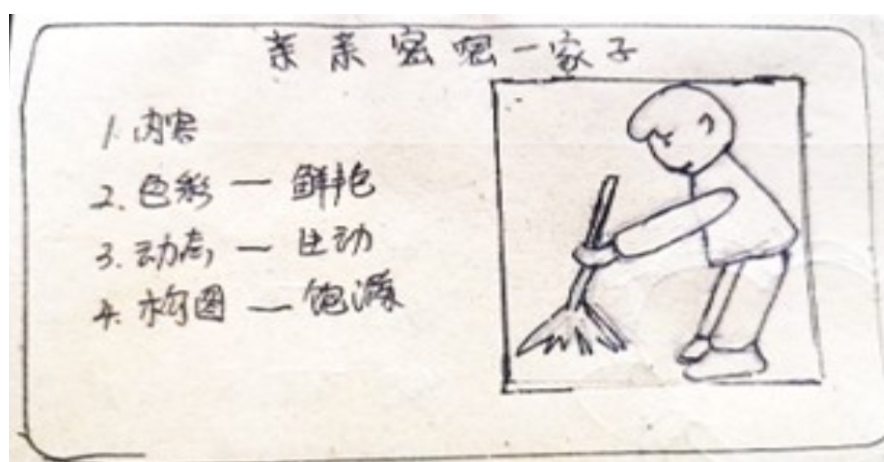 亲亲密密一家子
1. 内容
2. 色彩 — 鲜艳
3. 动态 — 生动
4. 构图 — 饱满